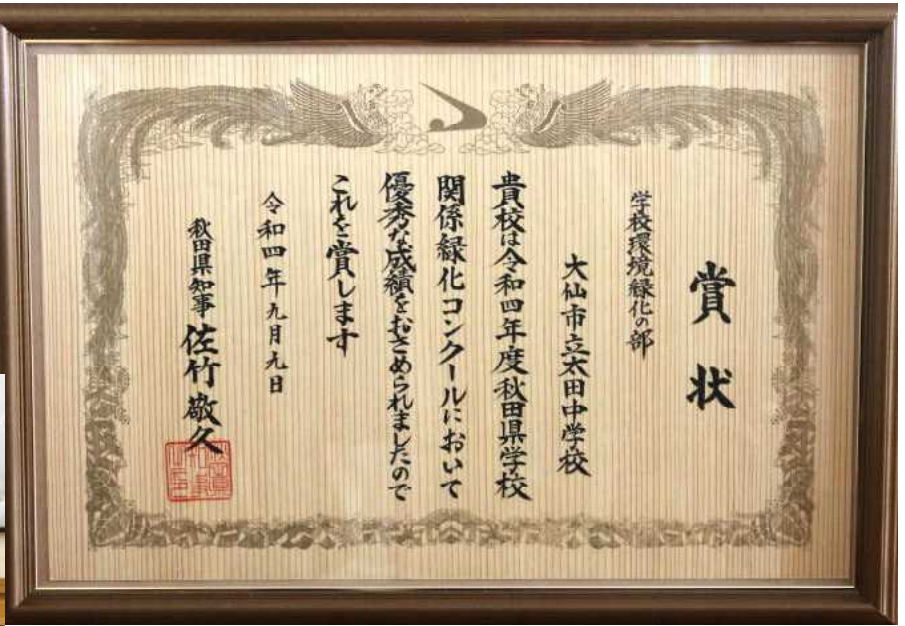 賞状
学校環境緑化の部
大仙市立太田中学校
貴校は令和四年度秋田県学校
関係緑化コンクールにおいて
優秀な成績をおさめられましたので
これを賞します
令和四年九月九日
秋田県知事 佐竹敬久